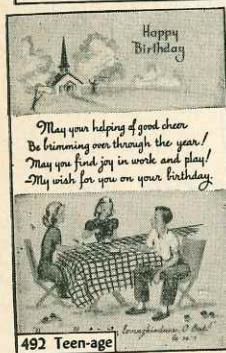 Happy
Birthday
May your helping of good cheer
Be brimming over through the year!
May you find joy in work and play!
My wish for you on your birthday.
492 Teen-age